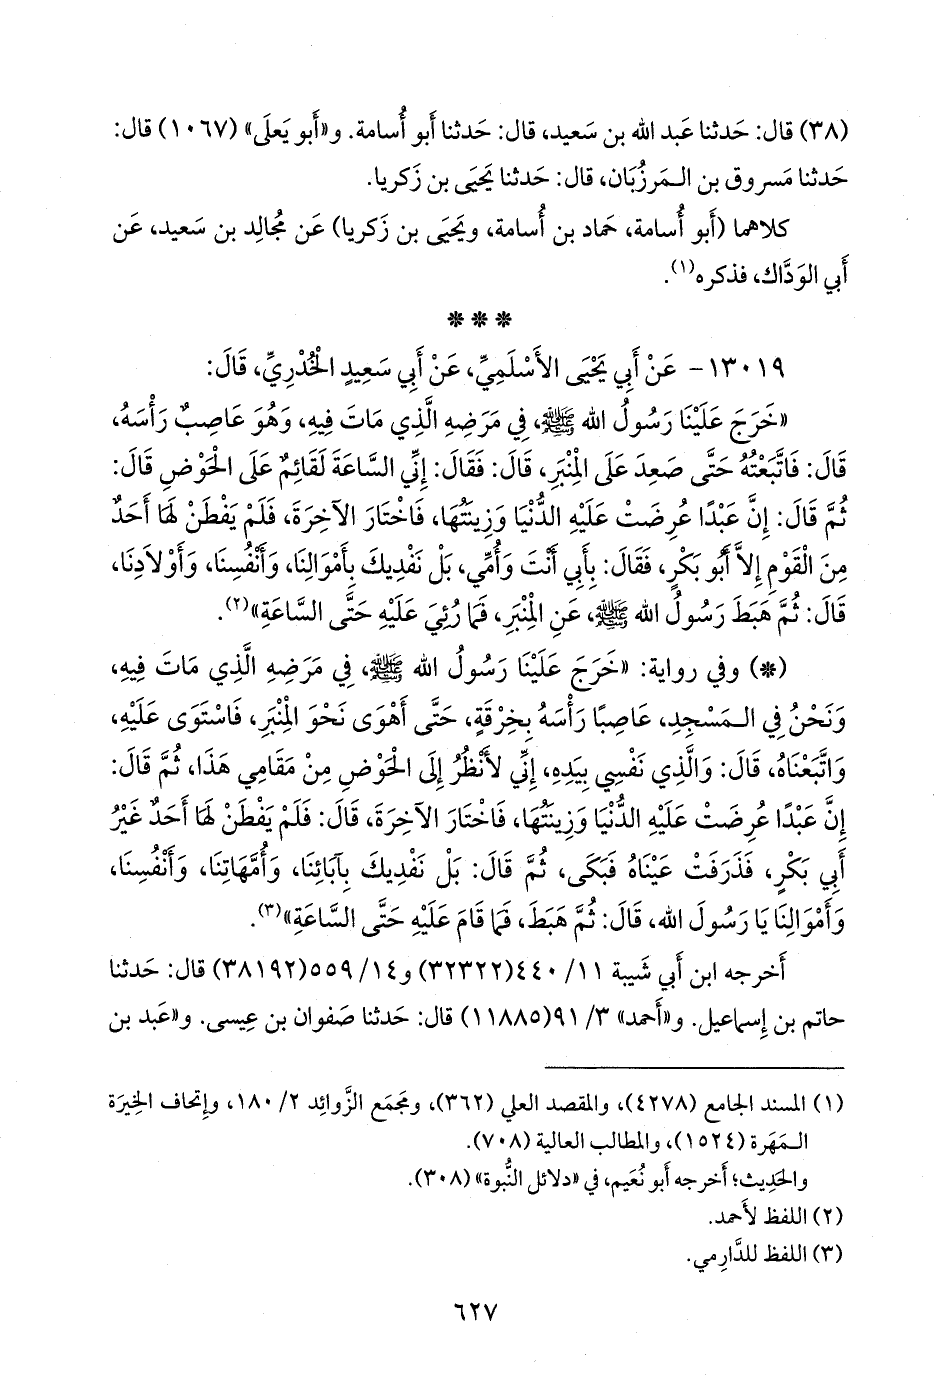 (٣٨) قال: حَدثنا عَبد الله بن سَعيد، قال: حَدثنا أَبو أُسامة. و«أَبو يَعلَى» (١٠٦٧) قال:
حَدثنا مَسروق بن الـمَرزُبَان، قال: حَدثنا يَحيَى بن زَكريا.
كلاهما (أَبو أُسامة، حَماد بن أُسامة، ويَحيَى بن زَكريا) عَن مُجالِد بن سَعيد، عَن
أَبي الوَدَّاك، فذكره(١).
* * *
١٣٠١٩- عَنْ أَبِي يَحْيَى الأَسْلَمِيِّ، عَنْ أَبِي سَعِيدٍ الخُدْرِيِّ، قَالَ:
«خَرَجَ عَلَيْنَا رَسُولُ الله ﷺ، فِي مَرَضِهِ الَّذِي مَاتَ فِيهِ، وَهُوَ عَاصِبٌ رَأْسَهُ،
قَالَ: فَاتَّبَعْتُهُ حَتَّى صَعِدَ عَلَى المِنْبَرِ، قَالَ: فَقَالَ: إِنِّي السَّاعَةَ لَقَائِمٌ عَلَى الحَوْضِ قَالَ:
ثُمَّ قَالَ: إِنَّ عَبْدًا عُرِضَتْ عَلَيْهِ الدُّنْيَا وَزِينَتُهَا، فَاخْتَارَ الآخِرَةَ، فَلَمْ يَفْطَنْ لَهَا أَحَدٌ
مِنَ الْقَوْمِ إِلاَّ أَبُو بَكْرٍ، فَقَالَ: بِأَبِي أَنْتَ وَأُمِّي، بَلْ نَفْدِيكَ بِأَمْوَالِنَا، وَأَنْفُسِنَا، وَأَوْلاَدِنَا،
قَالَ: ثُمَّ هَبَطَ رَسُولُ الله ﷺ، عَنِ المِنْبَرِ، فَمَا رُئِيَ عَلَيْهِ حَتَّى السَّاعَةِ»(٢).
(*) وفي رواية: «خَرَجَ عَلَيْنَا رَسُولُ الله ﷺ، فِي مَرَضِهِ الَّذِي مَاتَ فِيهِ،
وَنَحْنُ فِي الـمَسْجِدِ، عَاصِبًا رَأْسَهُ بِخِرْقَةٍ، حَتَّى أَهْوَى نَحْوَ المِنْبَرِ، فَاسْتَوَى عَلَيْهِ،
وَاتَّبَعْنَاهُ، قَالَ: وَالَّذِي نَفْسِي بِيَدِهِ، إِنِّي لأَنْظُرُ إِلَى الحَوْضِ مِنْ مَقَامِي هَذَا، ثُمَّ قَالَ:
إِنَّ عَبْدًا عُرِضَتْ عَلَيْهِ الدُّنْيَا وَزِينَتُهَا، فَاخْتَارَ الآخِرَةَ، قَالَ: فَلَمْ يَفْطَنْ لَهَا أَحَدٌ غَيْرُ
أَبِي بَكْرٍ، فَذَرَفَتْ عَيْنَاهُ فَبَكَى، ثُمَّ قَالَ: بَلْ نَفْدِيكَ بِآبَائِنَا، وَأُمَّهَاتِنَا، وَأَنْفُسِنَا،
وَأَمْوَالِنَا يَا رَسُولَ الله، قَالَ: ثُمَّ هَبَطَ، فَمَا قَامَ عَلَيْهِ حَتَّى السَّاعَةِ»(٣).
أَخرجه ابن أَبي شَيبة ١١/ ٤٤٠(٣٢٣٢٢) و١٤/ ٥٥٩(٣٨١٩٢) قال: حَدثنا
حاتم بن إِسماعيل. و«أَحمد» ٣/ ٩١(١١٨٨٥) قال: حَدثنا صَفوان بن عِيسى. و«عَبد بن
(١) المسند الجامع (٤٢٧٨)، والمقصد العلي (٣٦٢)، ومَجمَع الزَّوائِد ٢/ ١٨٠، وإِتحاف الخِيرَة
الـمَهَرة (١٥٢٤)، والمطالب العالية (٧٠٨).
والحَدِيث؛ أَخرجه أَبو نُعَيم، في «دلائل النُّبوة» (٣٠٨).
(٢) اللفظ لأَحمد.
(٣) اللفظ للدَّارِمي.
٦٢٧